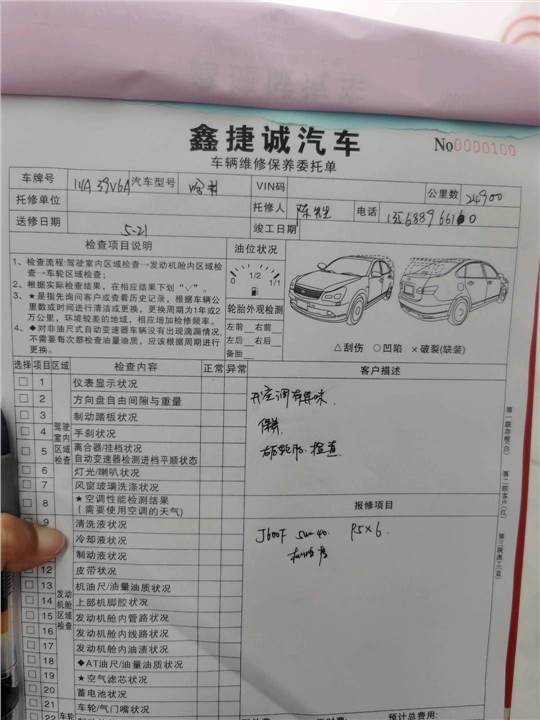 鑫捷诚汽车
车辆维修保养委托单
No0000100
车牌号 汽车型号 VIN码 公里数 24900
托修单位 托修人 陈先生 电话
送修日期 5-21 竣工日期
检查项目说明 油位状况
1、检查流程:驾驶室内区域检查→发动机舱内区域检查→车轮区域检查;
2、根据实际检查结果，在相应结果下划 "√"。
3、★是指先询问客户或查看历史记录，根据车辆公里数或时间进行清洁或更换，更换周期为1年或2万公里，环境较差的地域，相应增加检修频率。
4、◆对非油尺式自动变速器车辆没有出现滴漏情况，不需要每次都检查油量油质，应该根据周期进行更换。
0 1/2 1/1
轮胎外观检测
左前 右前
左后 右后
备胎
△刮伤 ○凹陷 ×破裂(缺装)
选择 项目 区域 检查内容 正常 异常 客户描述
驾驶室内区域检查
1 仪表显示状况
2 方向盘自由间隙与重量
3 制动踏板状况
4 手刹状况
5 离合器/挂档状况
自动变速器检测进档平顺状态
6 灯光/喇叭状况
7 风窗玻璃洗涤状况
8 ★空调性能检测结果
(需要使用空调的天气)
开空调有异味
保养
检查
报修项目
5w-40 R5×6
发动机舱区域检查
9 清洗液状况
冷却液状况
制动液状况
12 皮带状况
13 机油尺/油量油质状况
14 上部机脚胶状况
15 发动机舱内管路状况
16 发动机舱内线路状况
17 发动机舱内油渍状况
18 ◆AT油尺/油量油质状况
19 ★空气滤芯状况
20 蓄电池状况
21 车轮/气门嘴状况
22
车轮
预计总费用:
第一联存根(白)
第二联客户(红)